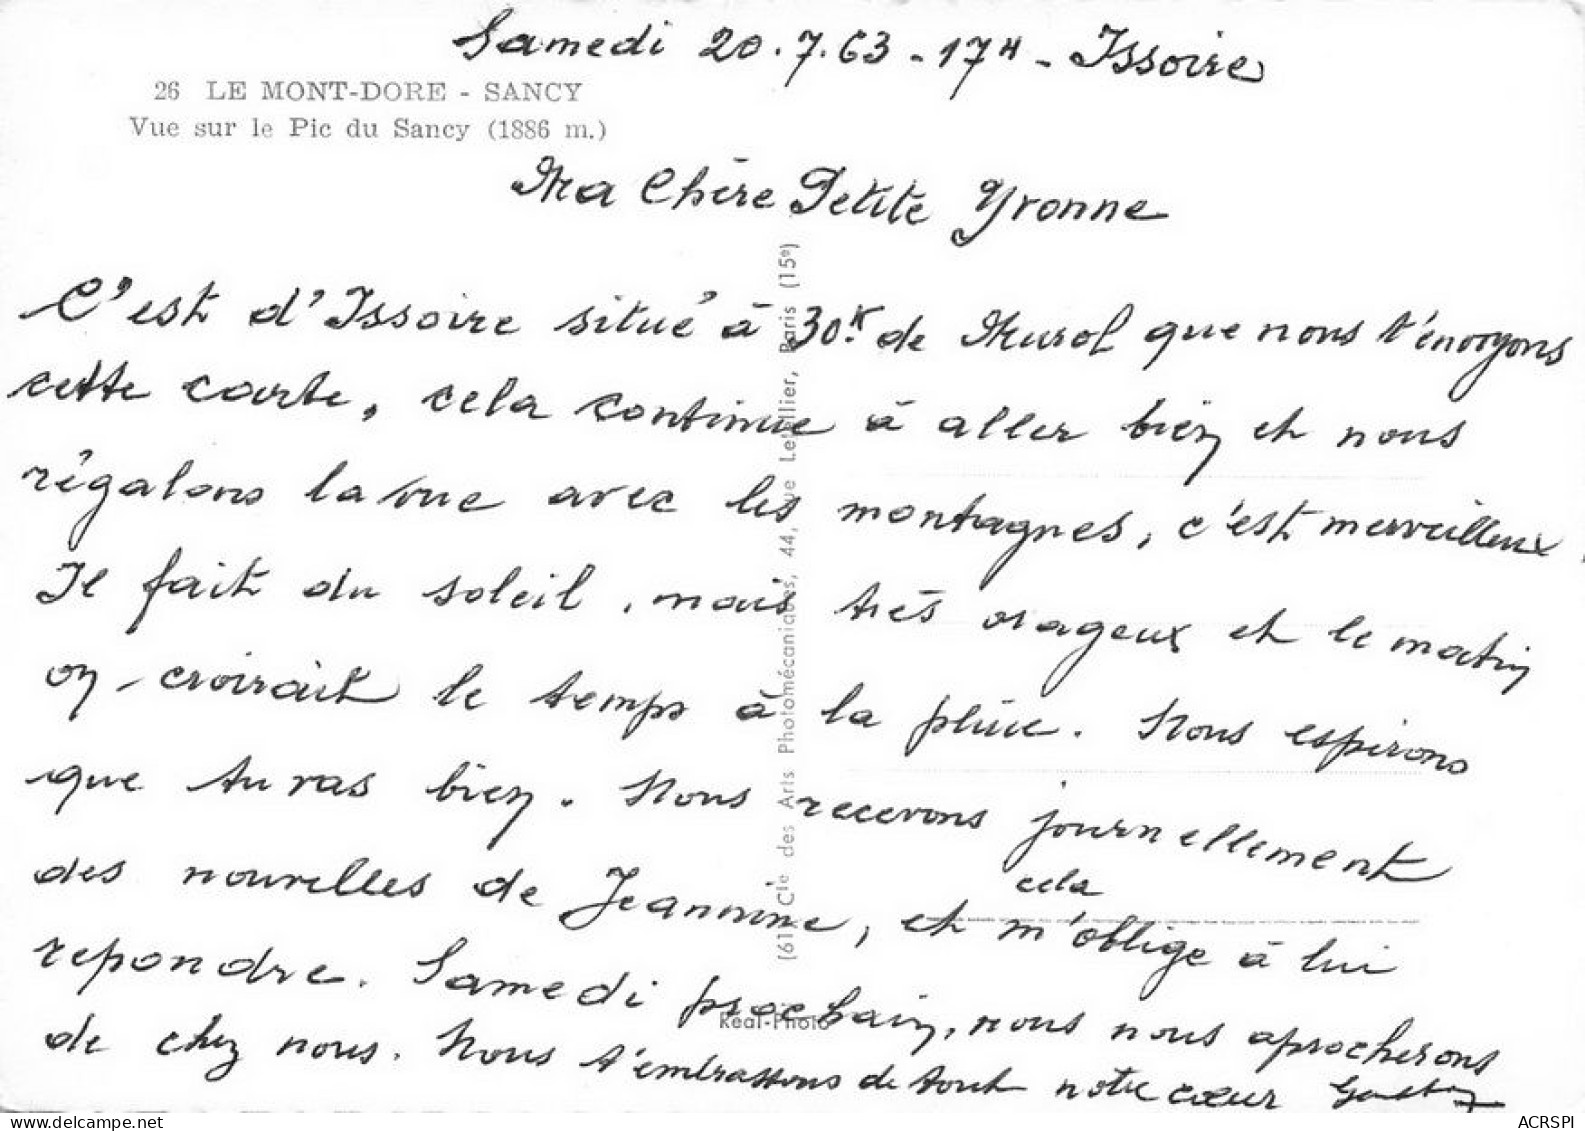 Samedi 20.7.63 - 17H - Issoire
26 LE MONT-DORE - SANCY
Vue sur le Pic du Sancy (1886 m.)
Ma Chère Petite Yvonne
C'est d'Issoire situé à 30.K de Murol que nous t'envoyons
cette carte, cela continue à aller bien et nous
régalons la vue avec les montagnes, c'est merveilleux.
Il fait du soleil, mais très orageux et le matin
on croirait le temps à la pluie. Nous espérons
que tu vas bien. Nous recevons journellement
des nouvelles de Jeannine, et cela m'oblige à lui
repondre. Samedi prochain, nous nous aprocherons
de chez nous. Nous t'embrassons de tout notre cœur
(61) Cie des Arts Photomécaniques, 44, rue Letellier, Paris (15e)
Real-Photo
delcampe.net
ACRSPI